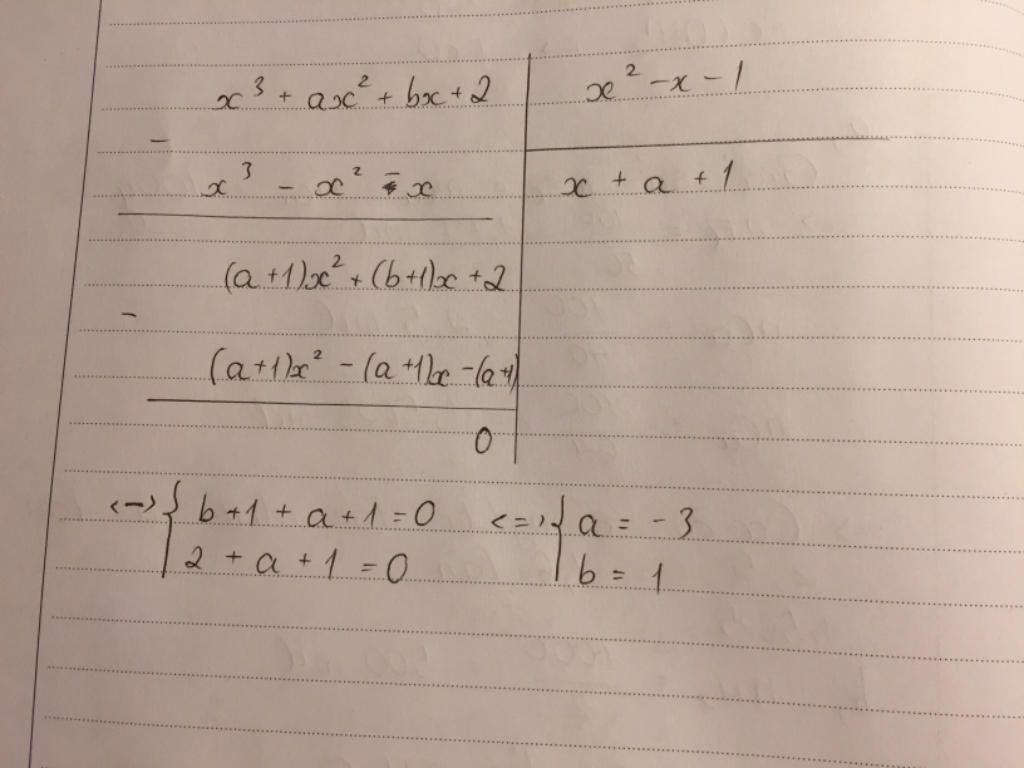 x³ + ax² + bx + 2
x² - x - 1
-
x³ - x² - x
x + a + 1
(a+1)x² + (b+1)x + 2
-
(a+1)x² - (a+1)x - (a+1)
0
<-> { b + 1 + a + 1 = 0 <=> { a = -3
2 + a + 1 = 0 b = 1